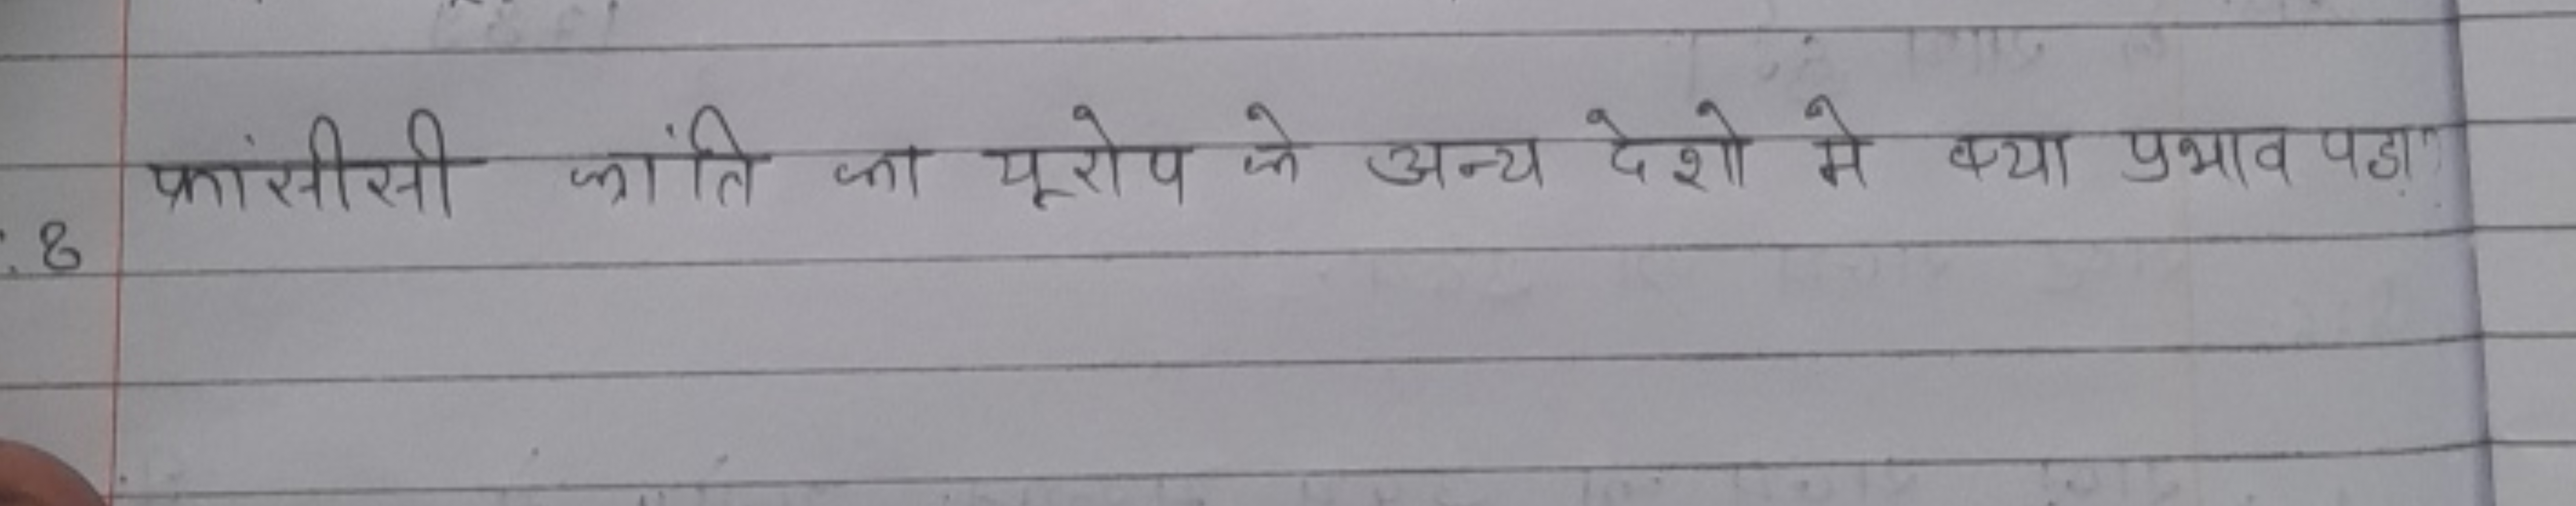 फ्रांसीसी क्रांति का यूरोप के अन्य देशो मे क्या प्रभाव पड़ा
:8